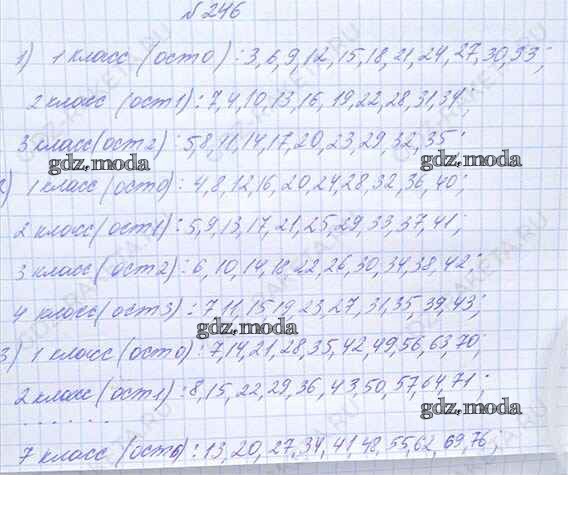 № 246
1) 1 класс (ост 0) : 3, 6, 9, 12, 15, 18, 21, 24, 27, 30, 33;
2 класс (ост 1) : 7, 4, 10, 13, 16, 19, 22, 28, 31, 34;
3 класс (ост 2) : 5, 8, 11, 14, 17, 20, 23, 29, 32, 35;
gdz.moda
gdz.moda
1 класс (ост 0) : 4, 8, 12, 16, 20, 24, 28, 32, 36, 40;
2 класс (ост 1) : 5, 9, 13, 17, 21, 25, 29, 33, 37, 41;
3 класс (ост 2) : 6, 10, 14, 18, 22, 26, 30, 34, 38, 42;
4 класс (ост 3) : 7, 11, 15, 19, 23, 27, 31, 35, 39, 43;
gdz.moda
3) 1 класс (ост 0) : 7, 14, 21, 28, 35, 42, 49, 56, 63, 70;
2 класс (ост 1) : 8, 15, 22, 29, 36, 43, 50, 57, 64, 71;
gdz.moda
. . . . . .
7 класс (ост 6) : 13, 20, 27, 34, 41, 48, 55, 62, 69, 76;